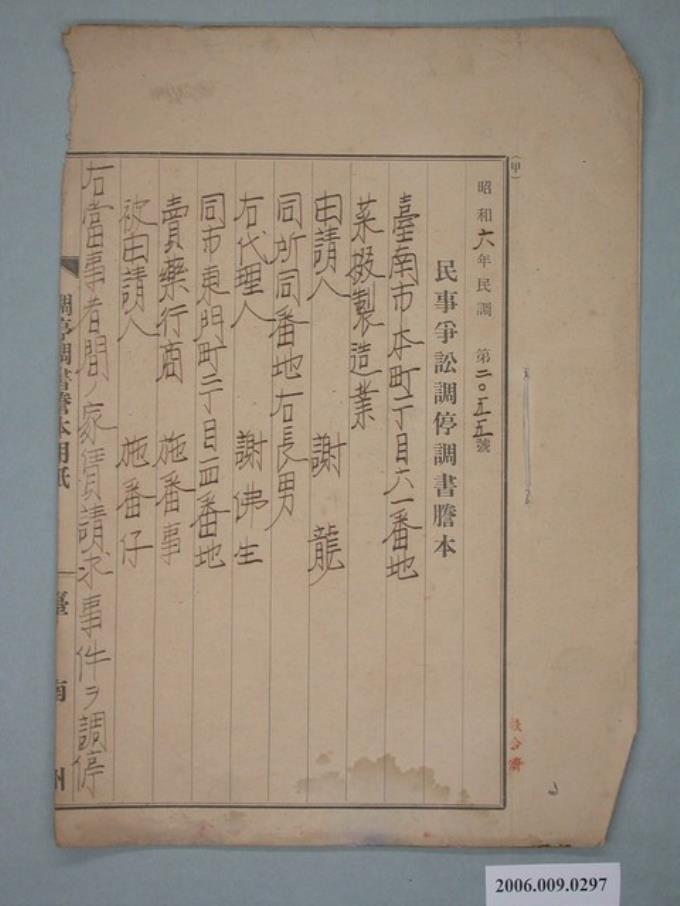 (甲)
昭和六年民調 第二〇五五號
民事爭訟調停調書謄本
臺南市本町一丁目六一番地
菜櫥製造業
申請人 謝龍
同所同番地右長男
右代理人 謝佛生
同市東門町二丁目一四番地
賣藥行商 施番事
被申請人 施番仔
右當事者間ノ家賃請求事件ヲ調停
調停調書謄本用紙
臺南州
校合濟
2006.009.0297